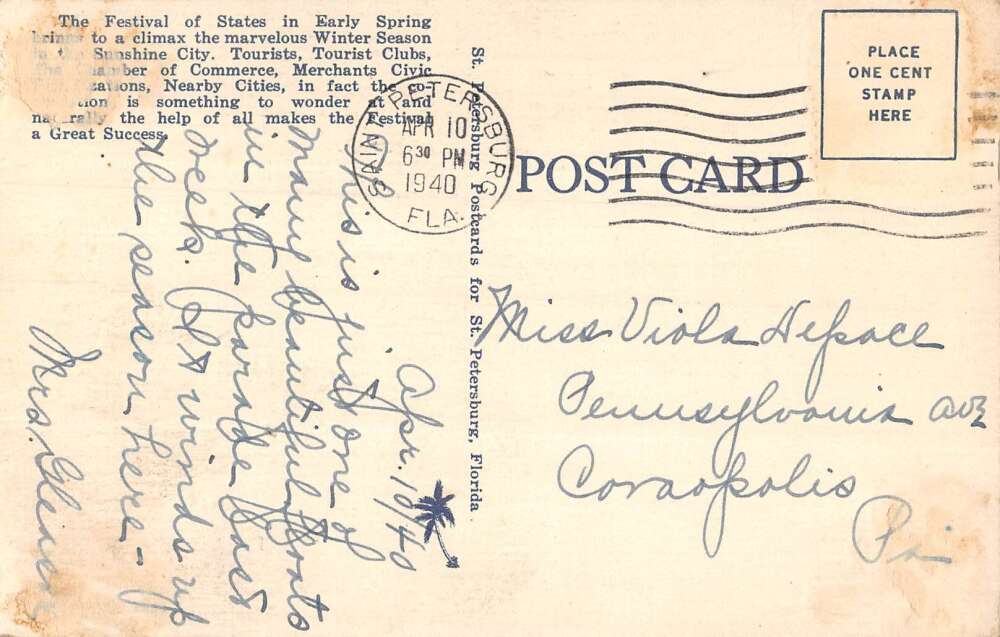 The Festival of States in Early Spring
brings to a climax the marvelous Winter Season
in the Sunshine City. Tourists, Tourist Clubs,
the Chamber of Commerce, Merchants Civic
zations, Nearby Cities, in fact the
is something to wonder at and
naturally the help of all makes the Festival
a Great Success.
St. Petersburg Postcards for St. Petersburg, Florida.
SAINT PETERSBURG
APR 10
6 30 PM
1940
FLA.
POST CARD
PLACE
ONE CENT
STAMP
HERE
Apr. 10/40
This is just one of
many beautiful floats
in the parade last
week. It winds up
the season here -
Mrs.
Miss Viola
Pennsylvania ave
Coraopolis
Pa